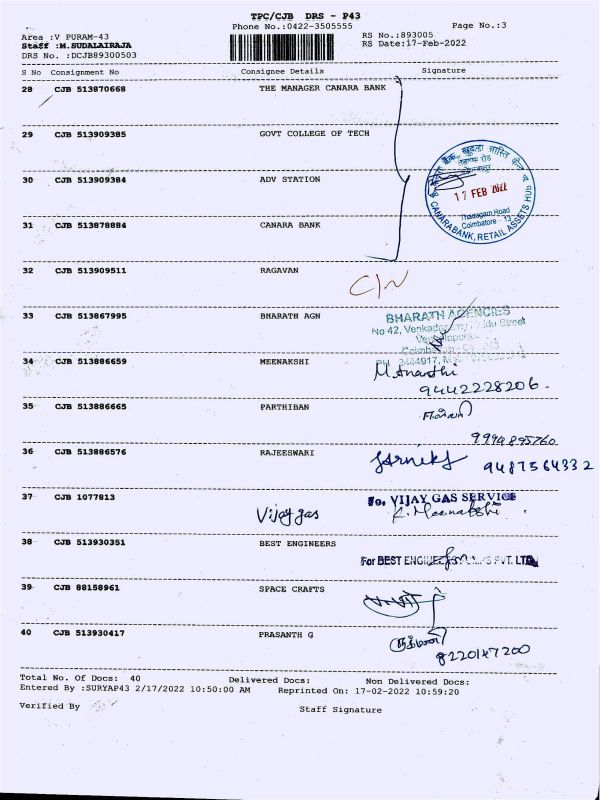 TPC/CJB DRS - P43
Phone No.:0422-3505555
Page No.:3
Area :V PURAM-43
RS No.:893005
Staff :M.SUDALAIRAJA
RS Date:17-Feb-2022
DRS No. :DCJB89300503
S No Consignment No Consignee Details Signature
28 CJB 513870668 THE MANAGER CANARA BANK
29 CJB 513909385 GOVT COLLEGE OF TECH
30 CJB 513909384 ADV STATION
17 FEB 2022
Thadagam Road
Coimbatore - 13
CANARA BANK, RETAIL ASSETS HUB
31 CJB 513878884 CANARA BANK
32 CJB 513909511 RAGAVAN
C/N
33 CJB 513867995 BHARATH AGN
BHARATH AGENCIES
No 42, Street
34 CJB 513886659 MEENAKSHI
M.Ananthi
9442228206-
35 CJB 513886665 PARTHIBAN
9994895760
36 CJB 513886576 RAJEESWARI
9487564332
37 CJB 1077813
Vijay gas
Fo. VIJAY GAS SERVICE
K. Meenakshi
38 CJB 513930351 BEST ENGINEERS
For BEST PVT. LTD
39 CJB 88158961 SPACE CRAFTS
40 CJB 513930417 PRASANTH G
8220147200
Total No. Of Docs: 40 Delivered Docs: Non Delivered Docs:
Entered By :SURYAP43 2/17/2022 10:50:00 AM Reprinted On: 17-02-2022 10:59:20
Verified By
Staff Signature